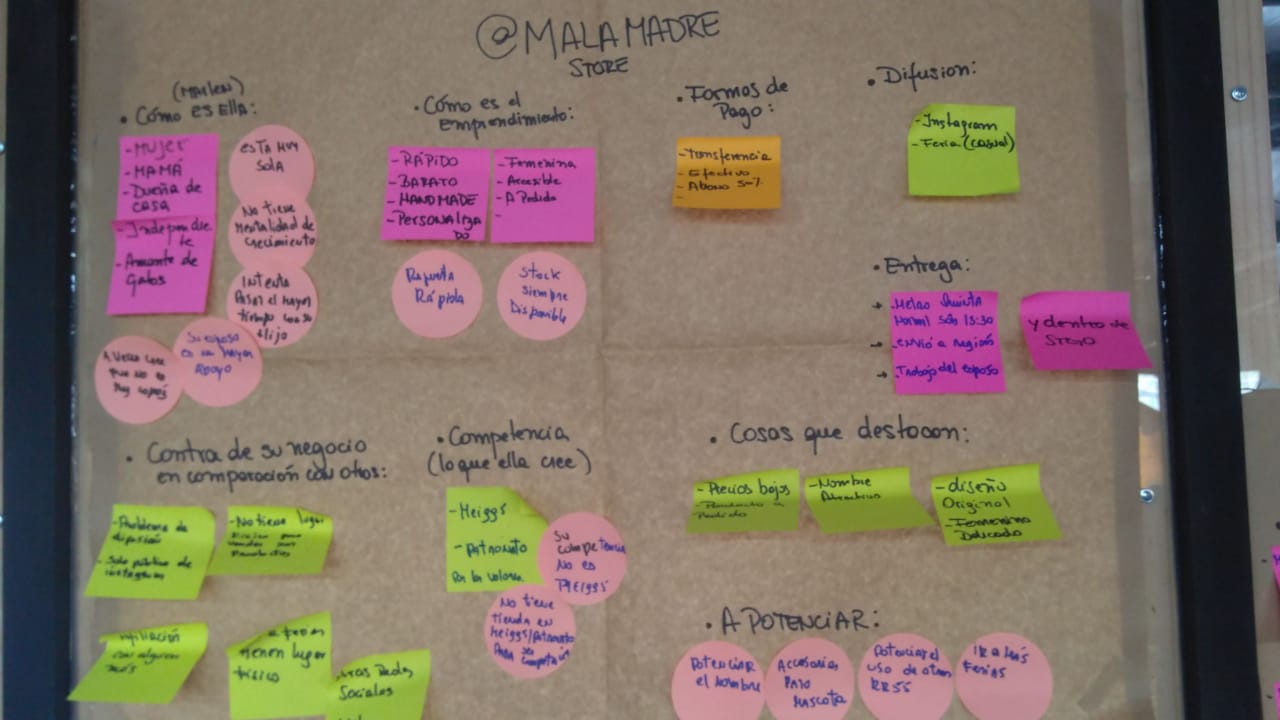 @MALA MADRE
STORE
(MAILEN)
• Cómo es ELLA:
- MUJER
- MAMÁ
- Dueña de
casa
- Amante de
Gatos
ESTA MUY
SOLA
No tiene
Mentalidad de
Crecimiento
INTENTA
Pasar el mayor
tiempo
Hijo
Su esposo
es su mayor
Apoyo
A veces cree
que no es
muy capaz
• Cómo es el
emprendimiento:
- RÁPIDO
- BARATO
- HANDMADE
- PERSONALIZA
DO
- Femenina
- Accesible
- A Pedido
-
Rápida
Stock
siempre
Disponible
• Formas de
Pago:
- Transferencia
- Efectivo
- Abono 50%
-
• Difusion:
- Instagram
- Feria (casual)
• Entrega:
→ Metro
15:30
→ envió a región
→ Trabajo del esposo
y dentro de
STGO
• Contra de su negocio
en comparación con otros:
- Problema de
difusión
- Solo público de
instagram
- No tiene lugar
con alguien
más
tienen lugar
físico
Redes
Sociales
• Competencia
(lo que ella cree)
- Meiggs
- Patronato
Por los valores
Su
competencia
No es
MEIGGS
No tiene
tienda en
Meiggs/Patronato
• Cosas que destacan:
- Precios bajos
- Producto a
Pedido
- Nombre
Atractivo
- diseño
Original
- Femenino
Delicado
• A POTENCIAR:
POTENCIAR
el nombre
Accesorios
PARA
MASCOTA
Potenciar el
uso de otras
RRSS
IR A MÁS
FERIAS